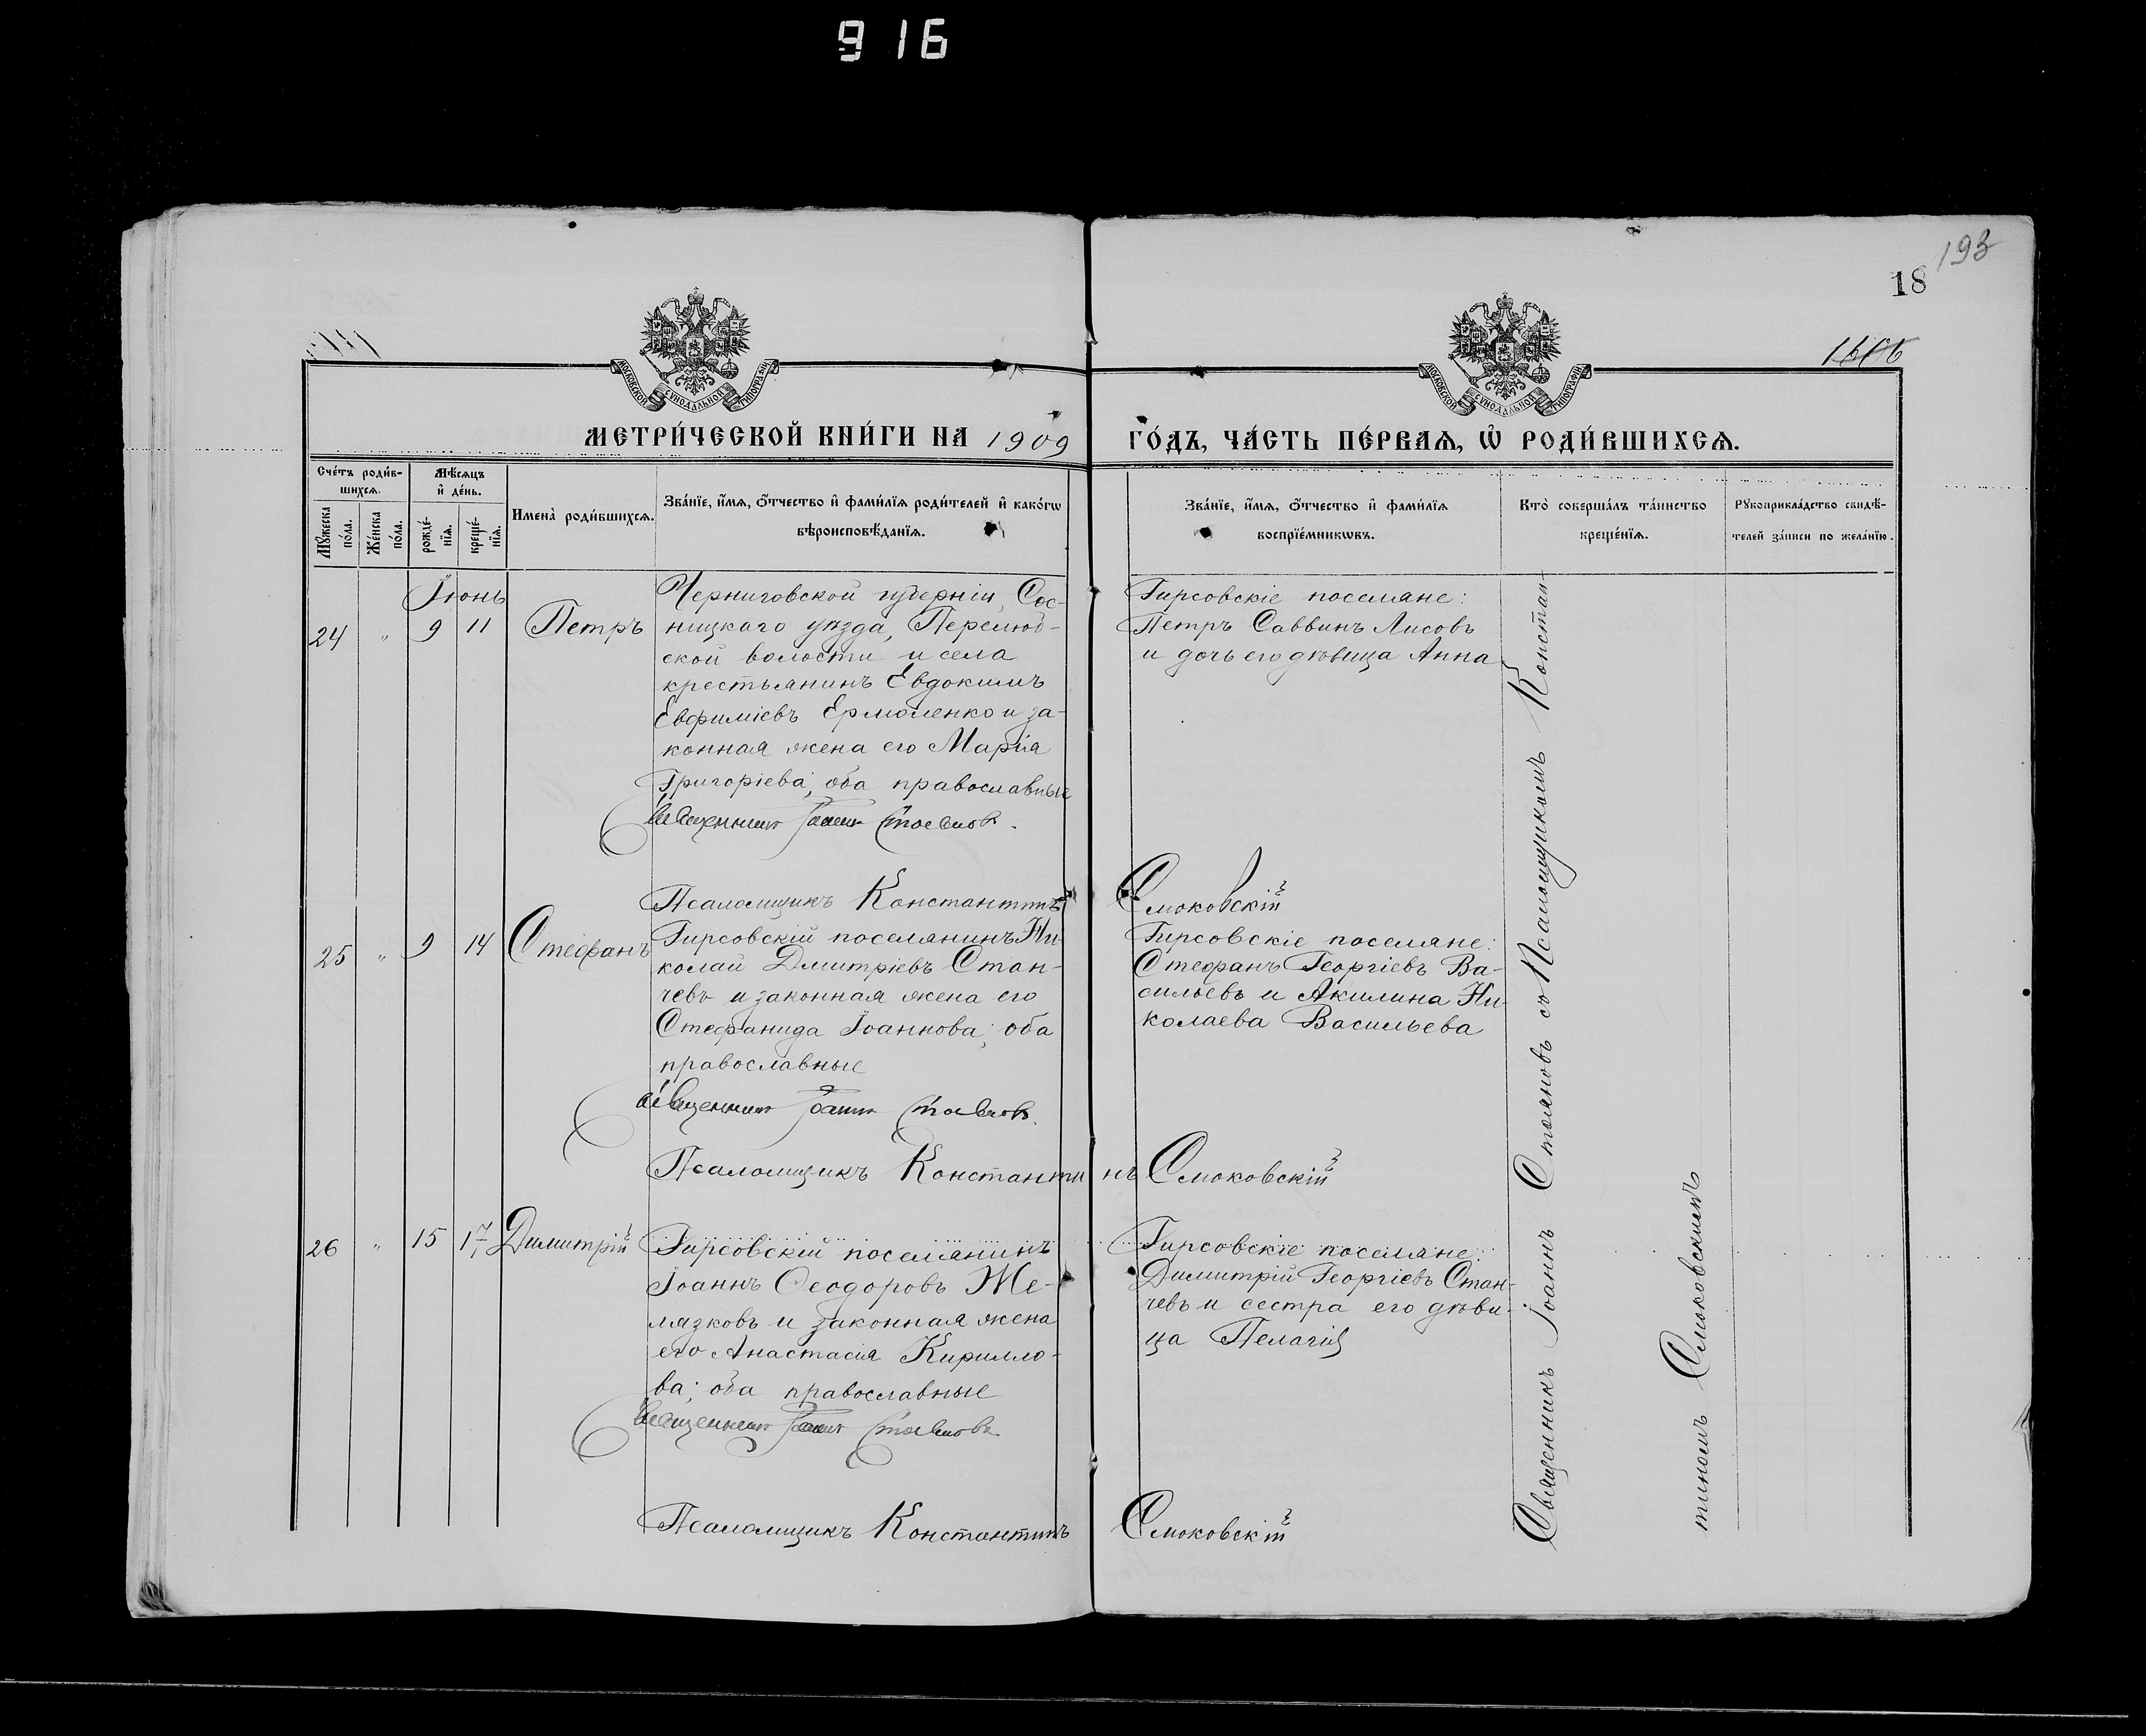 916
193
18
1616
МОСКОВСКОЙ СѴНОДАЛЬНОЙ ТИПОГРАФІИ
МОСКОВСКОЙ СѴНОДАЛЬНОЙ ТИПОГРАФІИ
МЕТРИ́ЧЕСКОЙ КНИ́ГИ НА 1909
ГО́ДЪ, ЧА́СТЬ ПЕ́РВАѦ, Ѽ РОДИ́ВШИХСѦ.
Сче́тъ роди́в-
шихсѧ.
Мꙋ́жеска по́ла.
Же́нска по́ла.
Мѣ́сѧцъ
и҆ де́нь.
рожде́-
нїѧ.
креще́-
нїѧ.
Имена̀ роди́вшихсѧ.
Зва́нїе, и҆́мѧ, ѻ҆́тчество и҆ фами́лїѧ роди́телей и҆ како́гѡ
вѣроисповѣ́данїѧ.
Зва́нїе, и҆́мѧ, ѻ҆́тчество и҆ фами́лїѧ
воспрїе́мникѡвъ.
Кто̀ соверша́лъ та́инство
креще́нїѧ.
Рꙋкоприкла́дство свидѣ́-
телей за́писи по жела́нїю.
Іюнь
24 " 9 11 Петръ
Черниговской губерніи, Сос-
ницкаго уѣзда, Перелюб-
ской волости и села
крестьянинъ Евдокимъ
Евфиміевъ Ермоленко и за-
конная жена его Марія
Григоріева; оба православные
Священникъ Іоаннъ Стояновъ.
Псаломщикъ Константинъ Смоковскій
Гирсовскіе поселяне:
Петръ Саввинъ Лисовъ
и дочь его дѣвица Анна
25 " 9 14 Стефанъ
Гирсовскій поселянинъ Ни-
колай Дмитріевъ Стан-
чевъ и законная жена его
Стефанида Іоаннова; оба
православные
Священникъ Іоаннъ Стояновъ.
Псаломщикъ Константинъ Смоковскій
Гирсовскіе поселяне:
Стефанъ Георгіевъ Ва-
сильевъ и Акилина Ни-
колаева Васильева
26 " 15 17 Димитрій
Гирсовскій поселянинъ
Іоаннъ Ѳеодоровъ Же-
лязковъ и законная жена
его Анастасія Кирилло-
ва; оба православные
Священникъ Іоаннъ Стояновъ
Псаломщикъ Константинъ Смоковскій
Гирсовскіе поселяне:
Димитрій Георгіевъ Стан-
чевъ и сестра его дѣви-
ца Пелагія
Священникъ Іоаннъ Стояновъ съ Псаломщикомъ Констан-
тиномъ Смоковскимъ